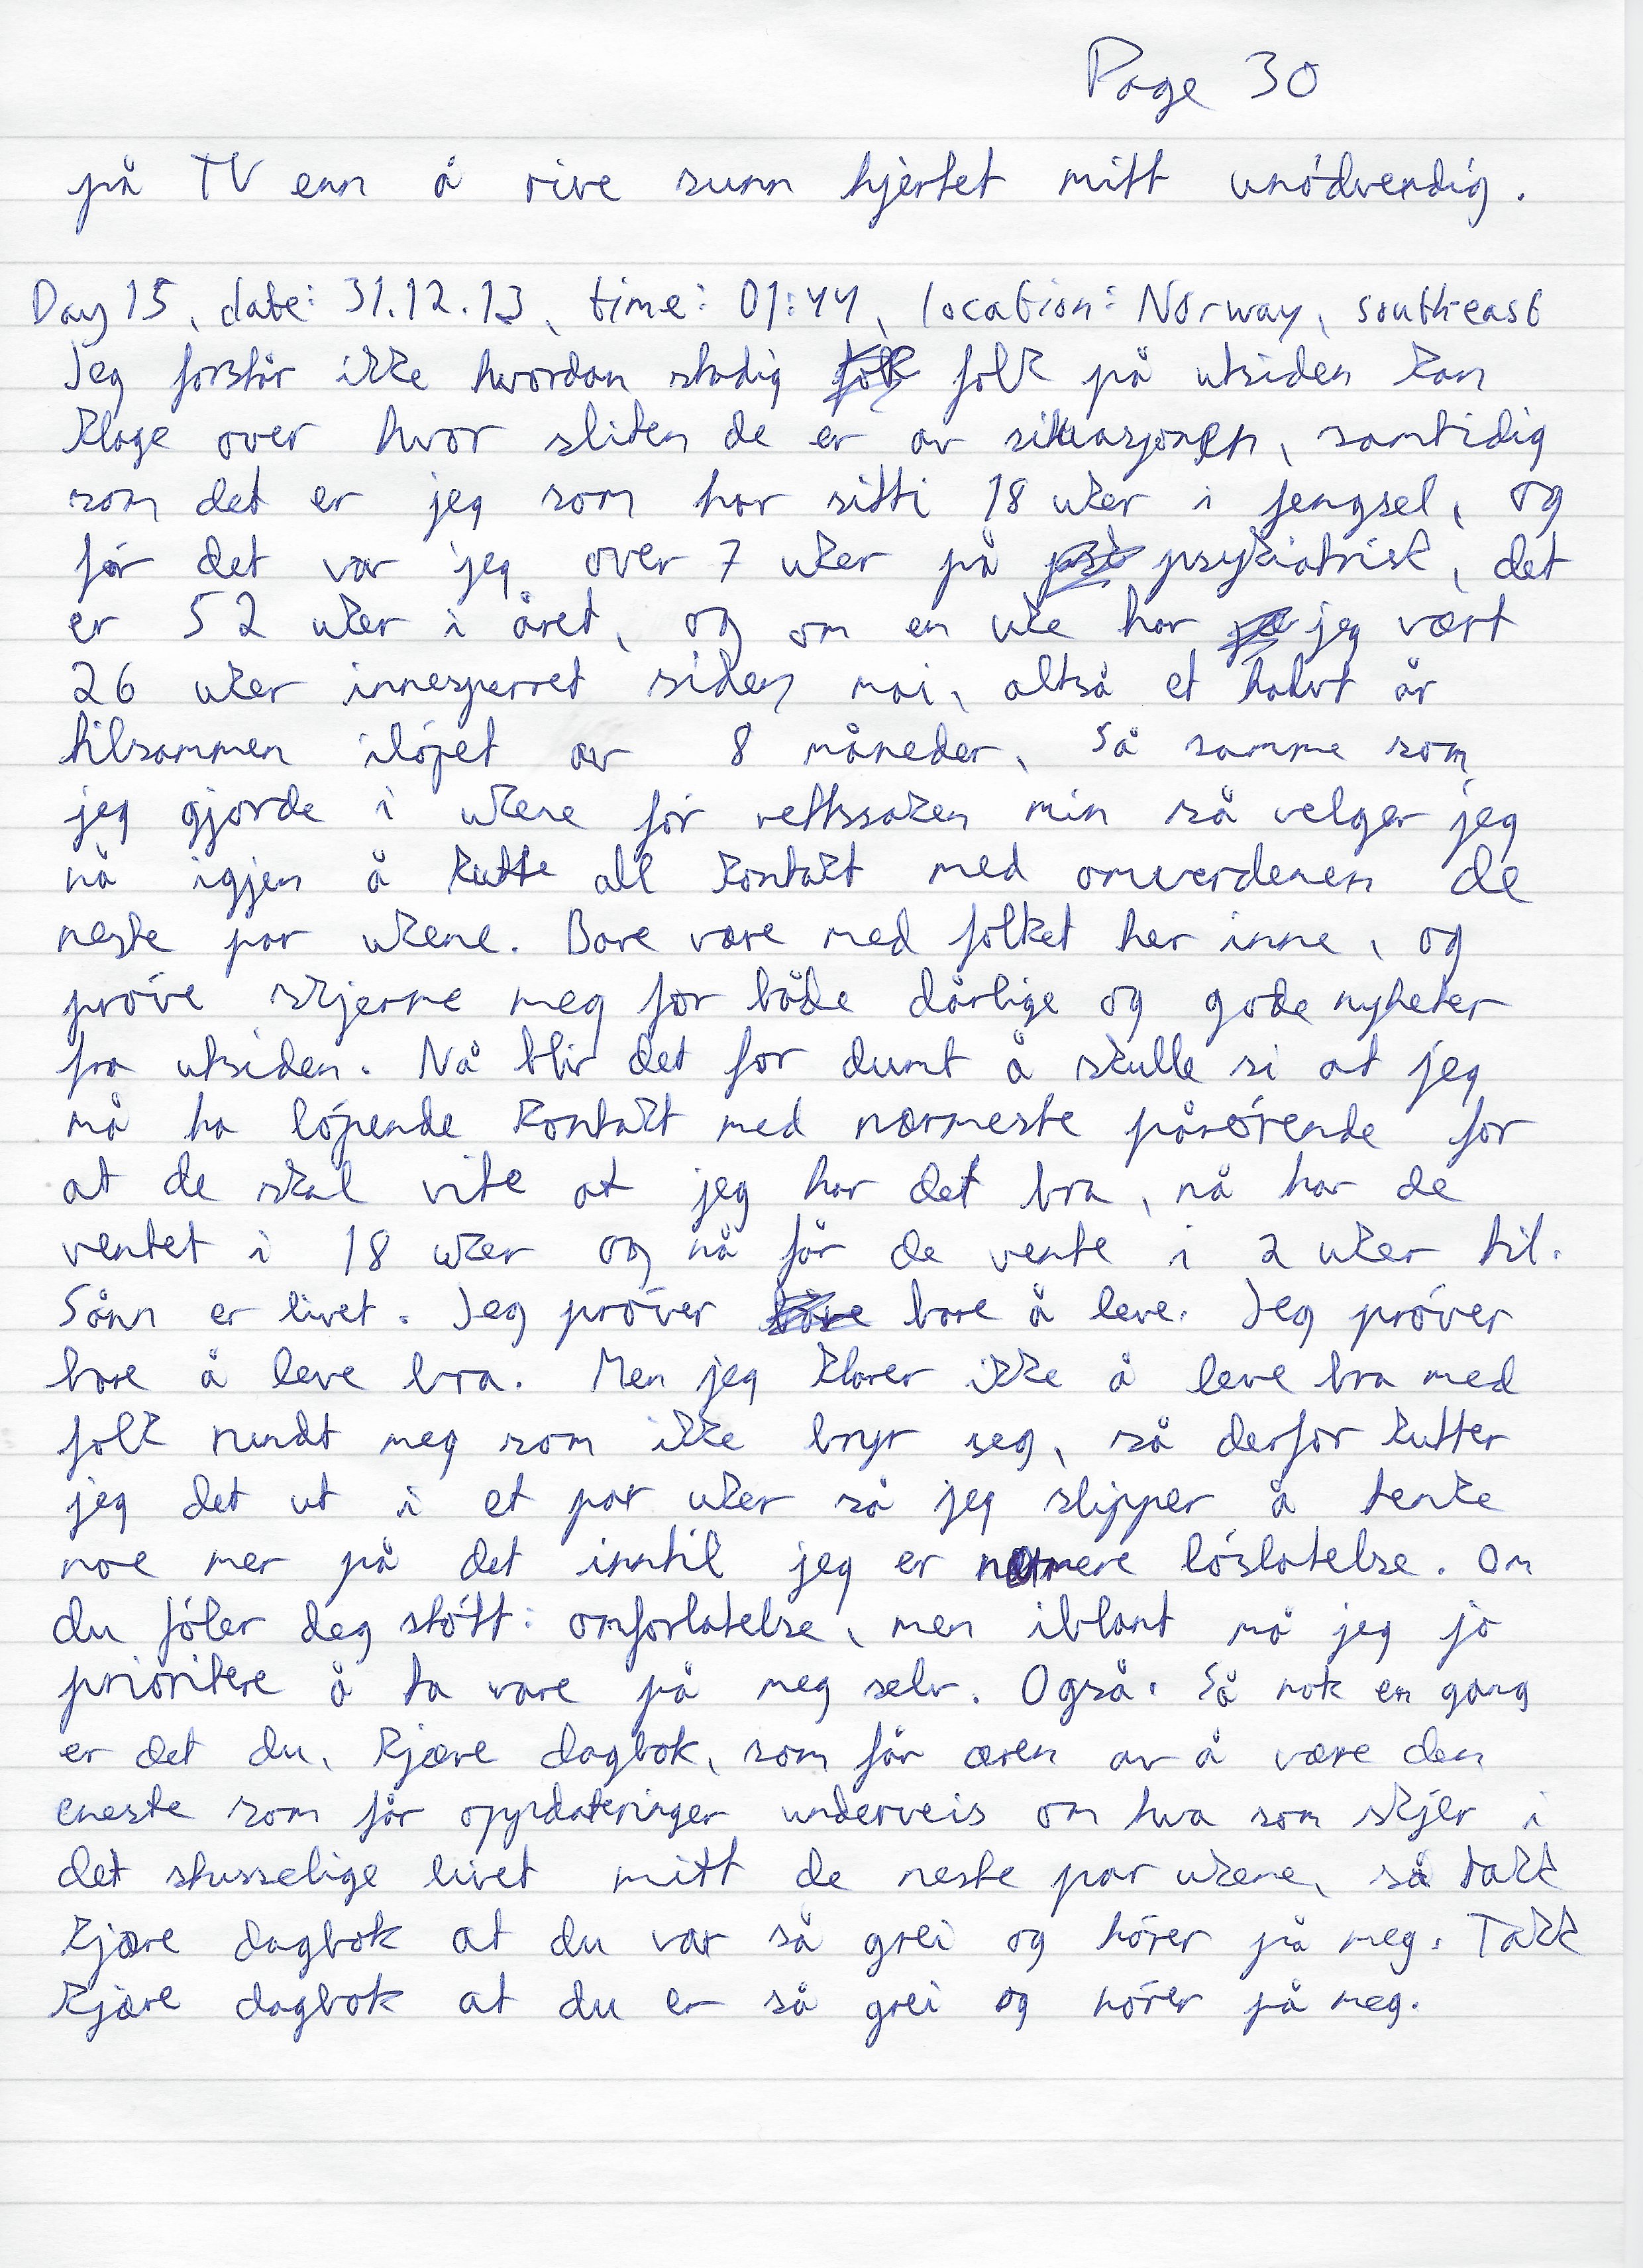 Page 30
på TV enn å rive sunn hjertet mitt unódvendig.
Day 15, date: 31.12.13, time: 01:44, location: Norway, southeast
Jeg forstår ikke hvordan stadig folk på utsiden kan
klage over hvor sliten de er av situasjonen, samtidig
som det er jeg som har sitti 18 uker i fengsel, og
før det var jeg over 7 uker på psykiatrisk, det
er 52 uker i året, og om en uke har jeg vært
26 uker innesperret siden mai, altså et halvt år
tilsammen ilópet av 8 måneder, så samme som
jeg gjorde i ukene fór rettssaken min så velger jeg
nå igjen å kutte all kontakt med omverdenen de
neste par ukene. Bare være med folket her inne, og
próve skjerme meg for både dårlige og gode nyheter
fra utsiden. Nå blir det for dumt å skulle si at jeg
må ha lópende kontakt med nærmeste pårórende for
at de skal vite at jeg har det bra, nå har de
ventet i 18 uker og nå får de vente i 2 uker til.
Sånn er livet. Jeg próver bare å leve. Jeg próver
bare å leve bra. Men jeg klarer ikke å leve bra med
folk rundt meg som ikke bryr seg, så derfor kutter
jeg det ut i et par uker så jeg slipper å tenke
noe mer på det inntil jeg er nærmere lóslatelse. Om
du fóler deg stótt: omforlatelse, men iblant må jeg jo
prioritere å ta vare på meg selv. Også. Så nok en gang
er det du, kjære dagbok, som får æren av å være den
eneste som får oppdateringer underveis om hva som skjer i
det stusselige livet mitt de neste par ukene, så takk
kjære dagbok at du var så grei og hórer på meg. Takk
kjære dagbok at du er så grei og hórer på meg.